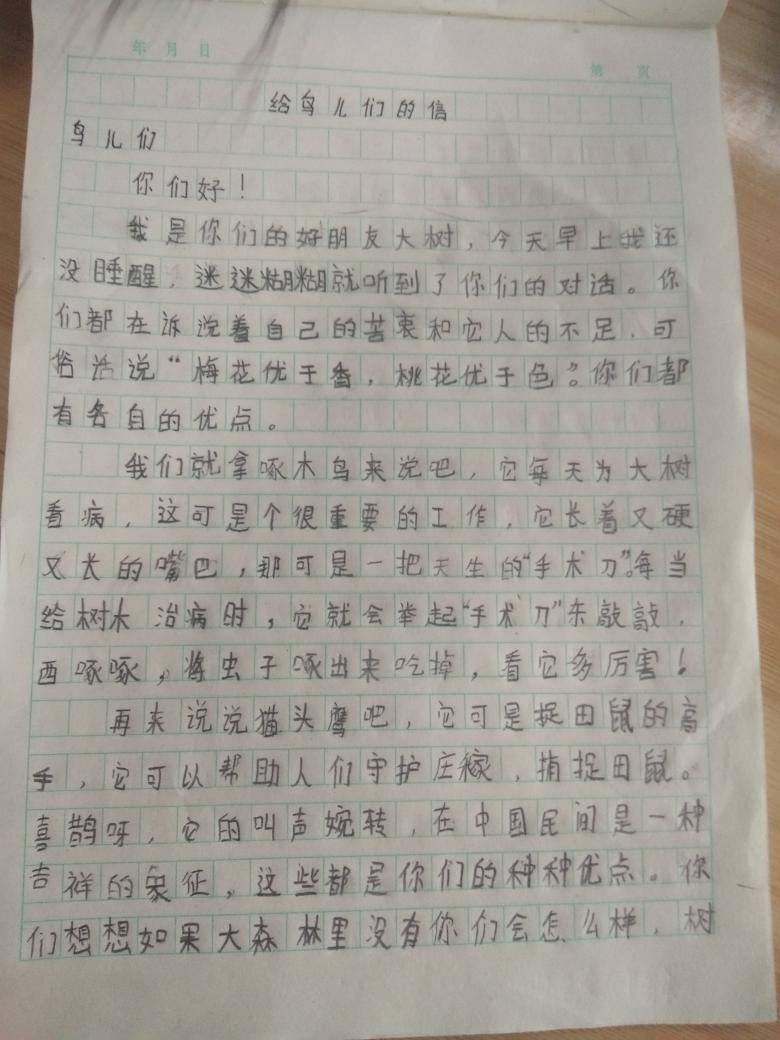 年 月 日
第 页
给鸟儿们的信
鸟儿们
你们好！
我是你们的好朋友大树，今天早上我还
没睡醒，迷迷糊糊就听到了你们的对话。你
们都在诉说着自己的苦衷和它人的不足，可
俗话说“梅花优于香，桃花优于色”。你们都
有各自的优点。
我们就拿啄木鸟来说吧，它每天为大树
看病，这可是个很重要的工作，它长着又硬
又长的嘴巴，那可是一把天生的“手术刀”。每当
给树木治病时，它就会举起“手术刀”东敲敲，
西啄啄，将虫子啄出来吃掉，看它多厉害！
再来说说猫头鹰吧，它可是捉田鼠的高
手，它可以帮助人们守护庄稼，捕捉田鼠。
喜鹊呀，它的叫声婉转，在中国民间是一种
吉祥的象征，这些都是你们的种种优点。你
们想想如果大森林里没有你们会怎么样，树